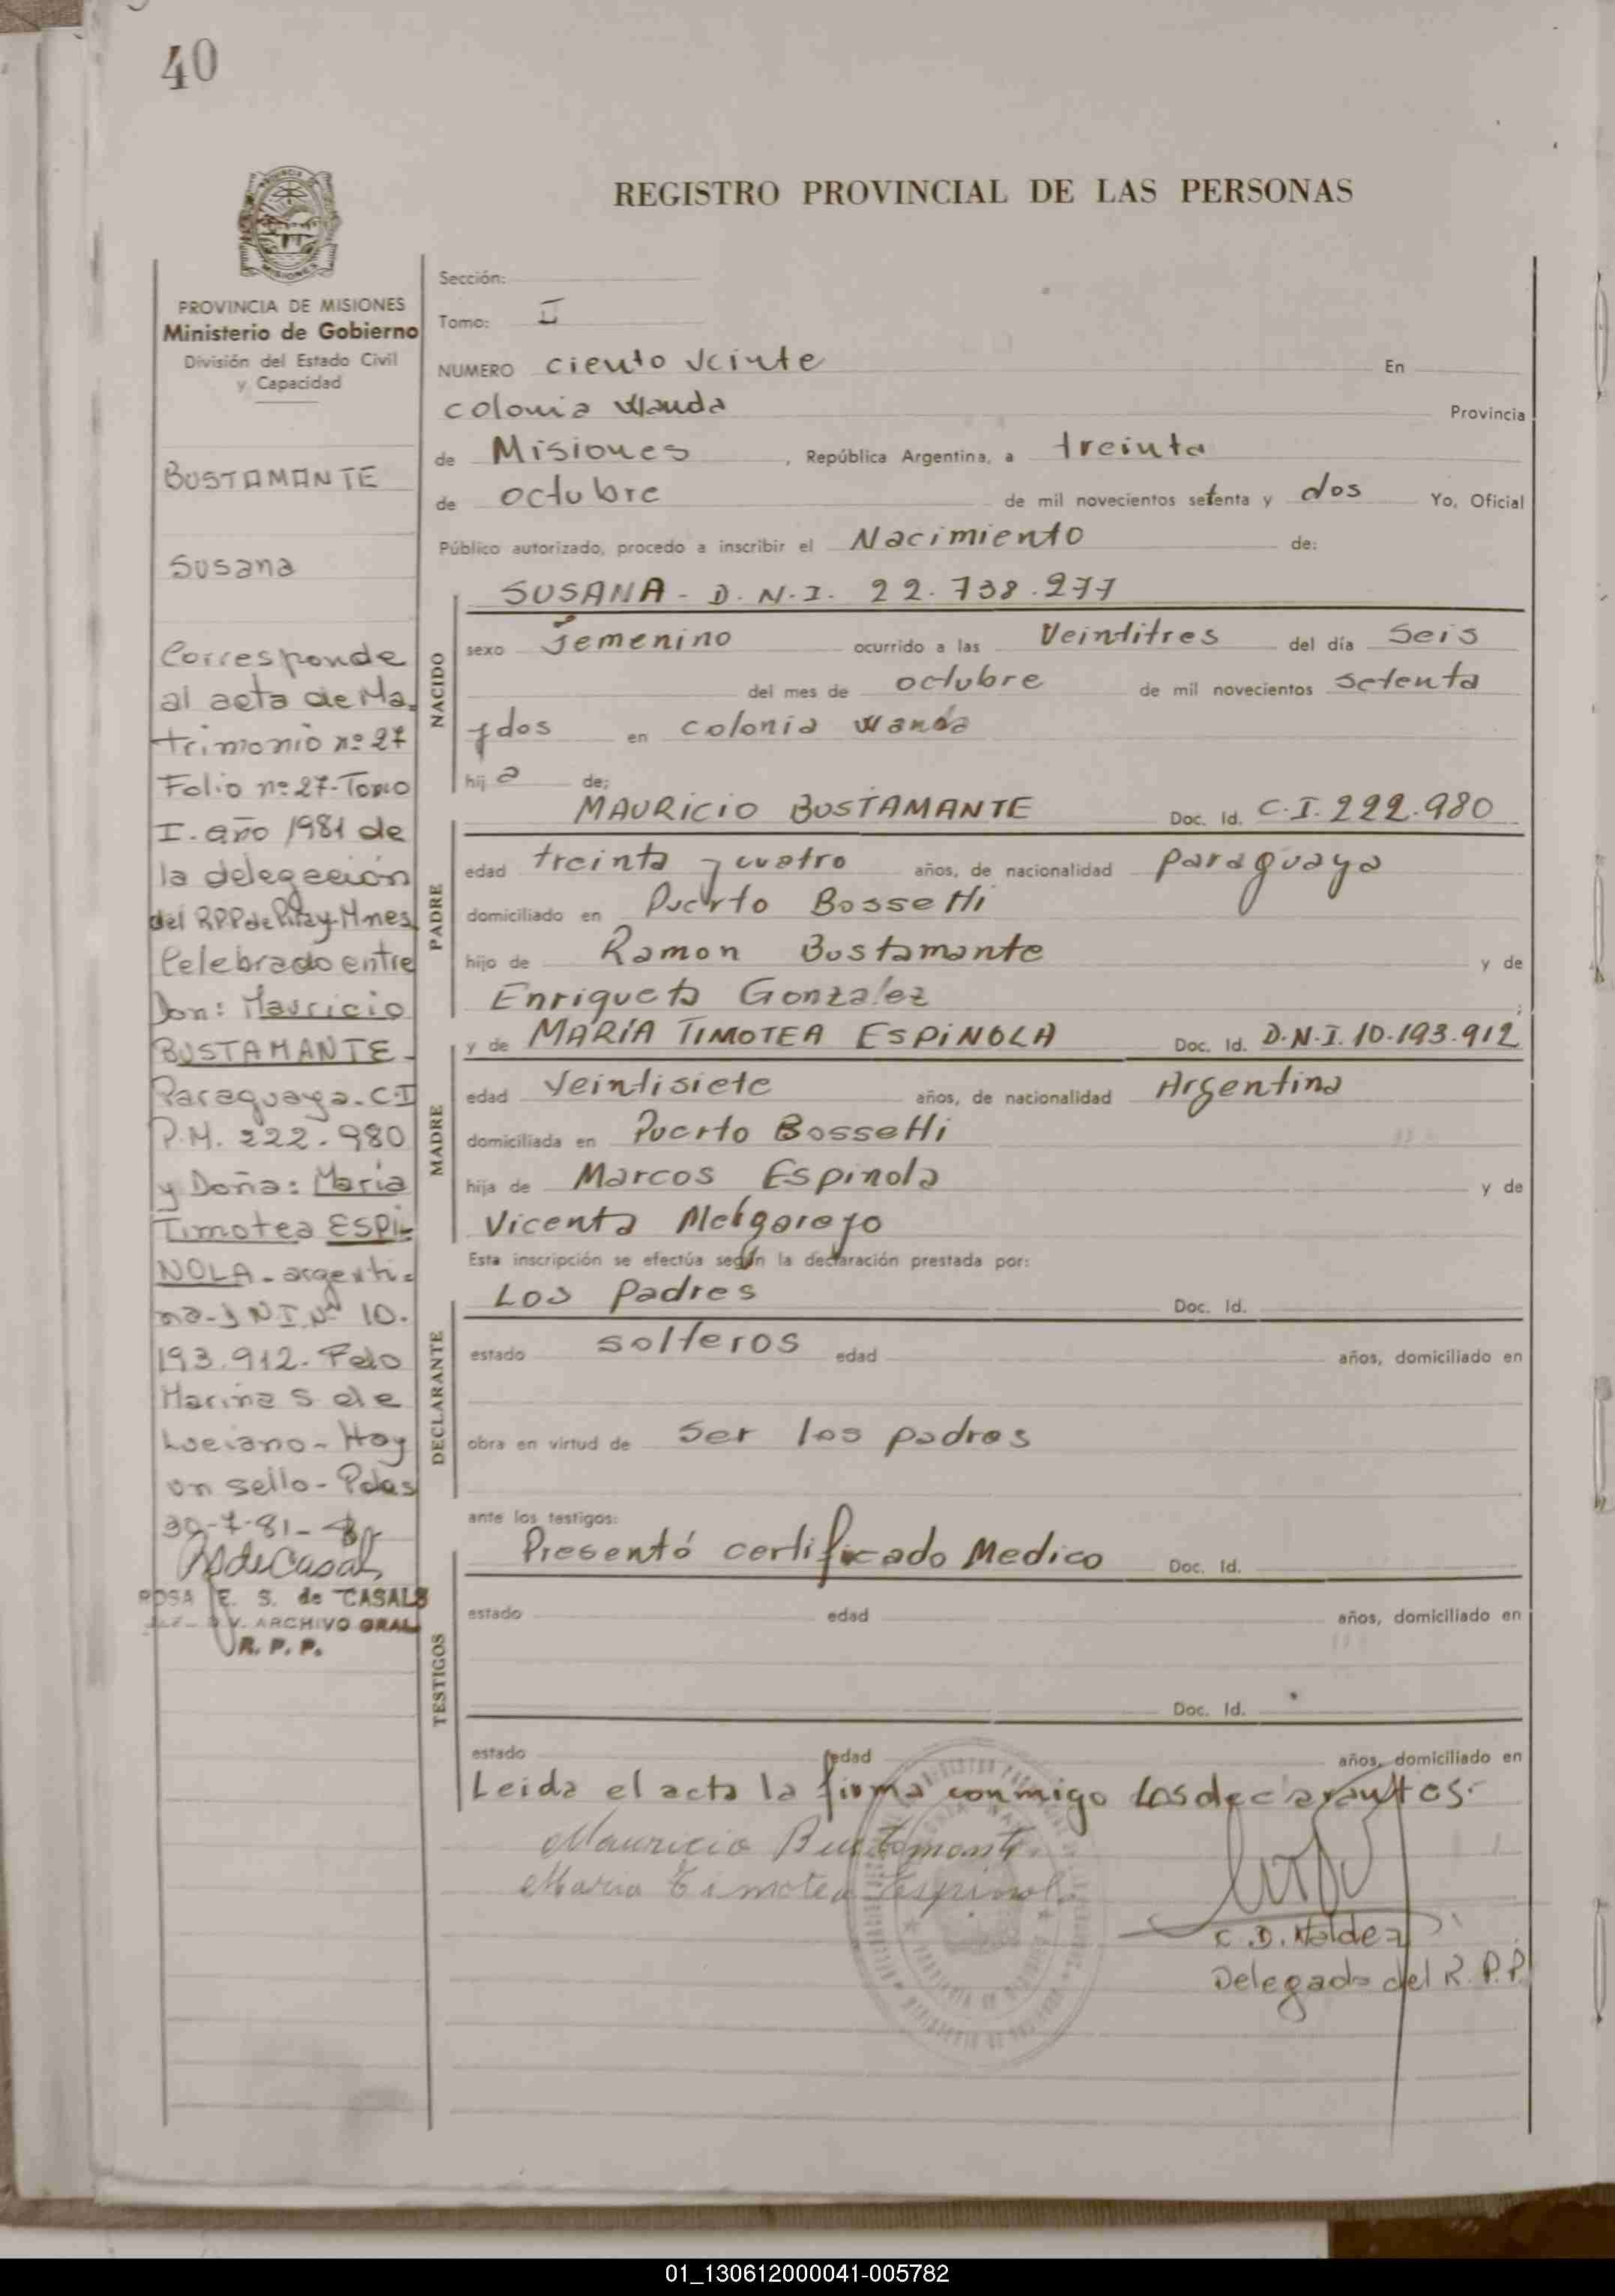 40
REGISTRO PROVINCIAL DE LAS PERSONAS
PROVINCIA DE MISIONES
Ministerio de Gobierno
División del Estado Civil
y Capacidad
BUSTAMANTE
Susana
Corresponde
al acta de Ma_
trimonio nº 27
Folio nº 27-Tomo
I. año 1981 de
la delegación
del R.P.P de Piray-Mnes
Celebrado entre
Don: Mauricio
BUSTAMANTE-
Paraguaya-C.I
P.M. 222.980
y Doña: María
Timotea ESPI-
NOLA-argenti-
na-D N.I. Nº 10.
193.912. Fdo
Marina S de
Luciano-Hay
un sello-Pdas
30-7-81-
RSdeCasals
ROSA E. S. de CASALS
DIV. ARCHIVO GRAL
R. P. P.
Sección:
Tomo: II
NUMERO ciento veinte En
colonia Wanda Provincia
de Misiones , República Argentina, a treinta
de octubre de mil novecientos setenta y dos Yo, Oficial
Público autorizado, procedo a inscribir el Nacimiento de:
NACIDO
SUSANA - D.N.I. 22.738.277
sexo femenino ocurrido a las Veintitres del día seis
del mes de octubre de mil novecientos setenta
y dos en colonia wanda
hij a de:
PADRE
MAURICIO BUSTAMANTE Doc. Id. C.I. 222.980
edad treinta y cuatro años, de nacionalidad paraguaya
domiciliado en Puerto Bossetti
hijo de Ramon Bustamante y de
Enriqueta Gonzalez
MADRE
y de MARÍA TIMOTEA ESPINOLA Doc. Id. D.N.I. 10.193.912
edad Veintisiete años, de nacionalidad Argentina
domiciliada en Puerto Bossetti
hija de Marcos Espinola y de
Vicenta Melgarejo
Esta inscripción se efectúa según la declaración prestada por:
DECLARANTE
Los Padres Doc. Id.
estado solteros edad años, domiciliado en
obra en virtud de Ser los padres
ante los testigos:
TESTIGOS
Presentó certificado Medico Doc. Id.
estado edad años, domiciliado en
Doc. Id.
estado edad años, domiciliado en
Leida el acta la firma conmigo Los declarantes.
Mauricio Bustamante
Maria Timotea Espinola
Delegado del R.P.P.
01_130612000041-005782